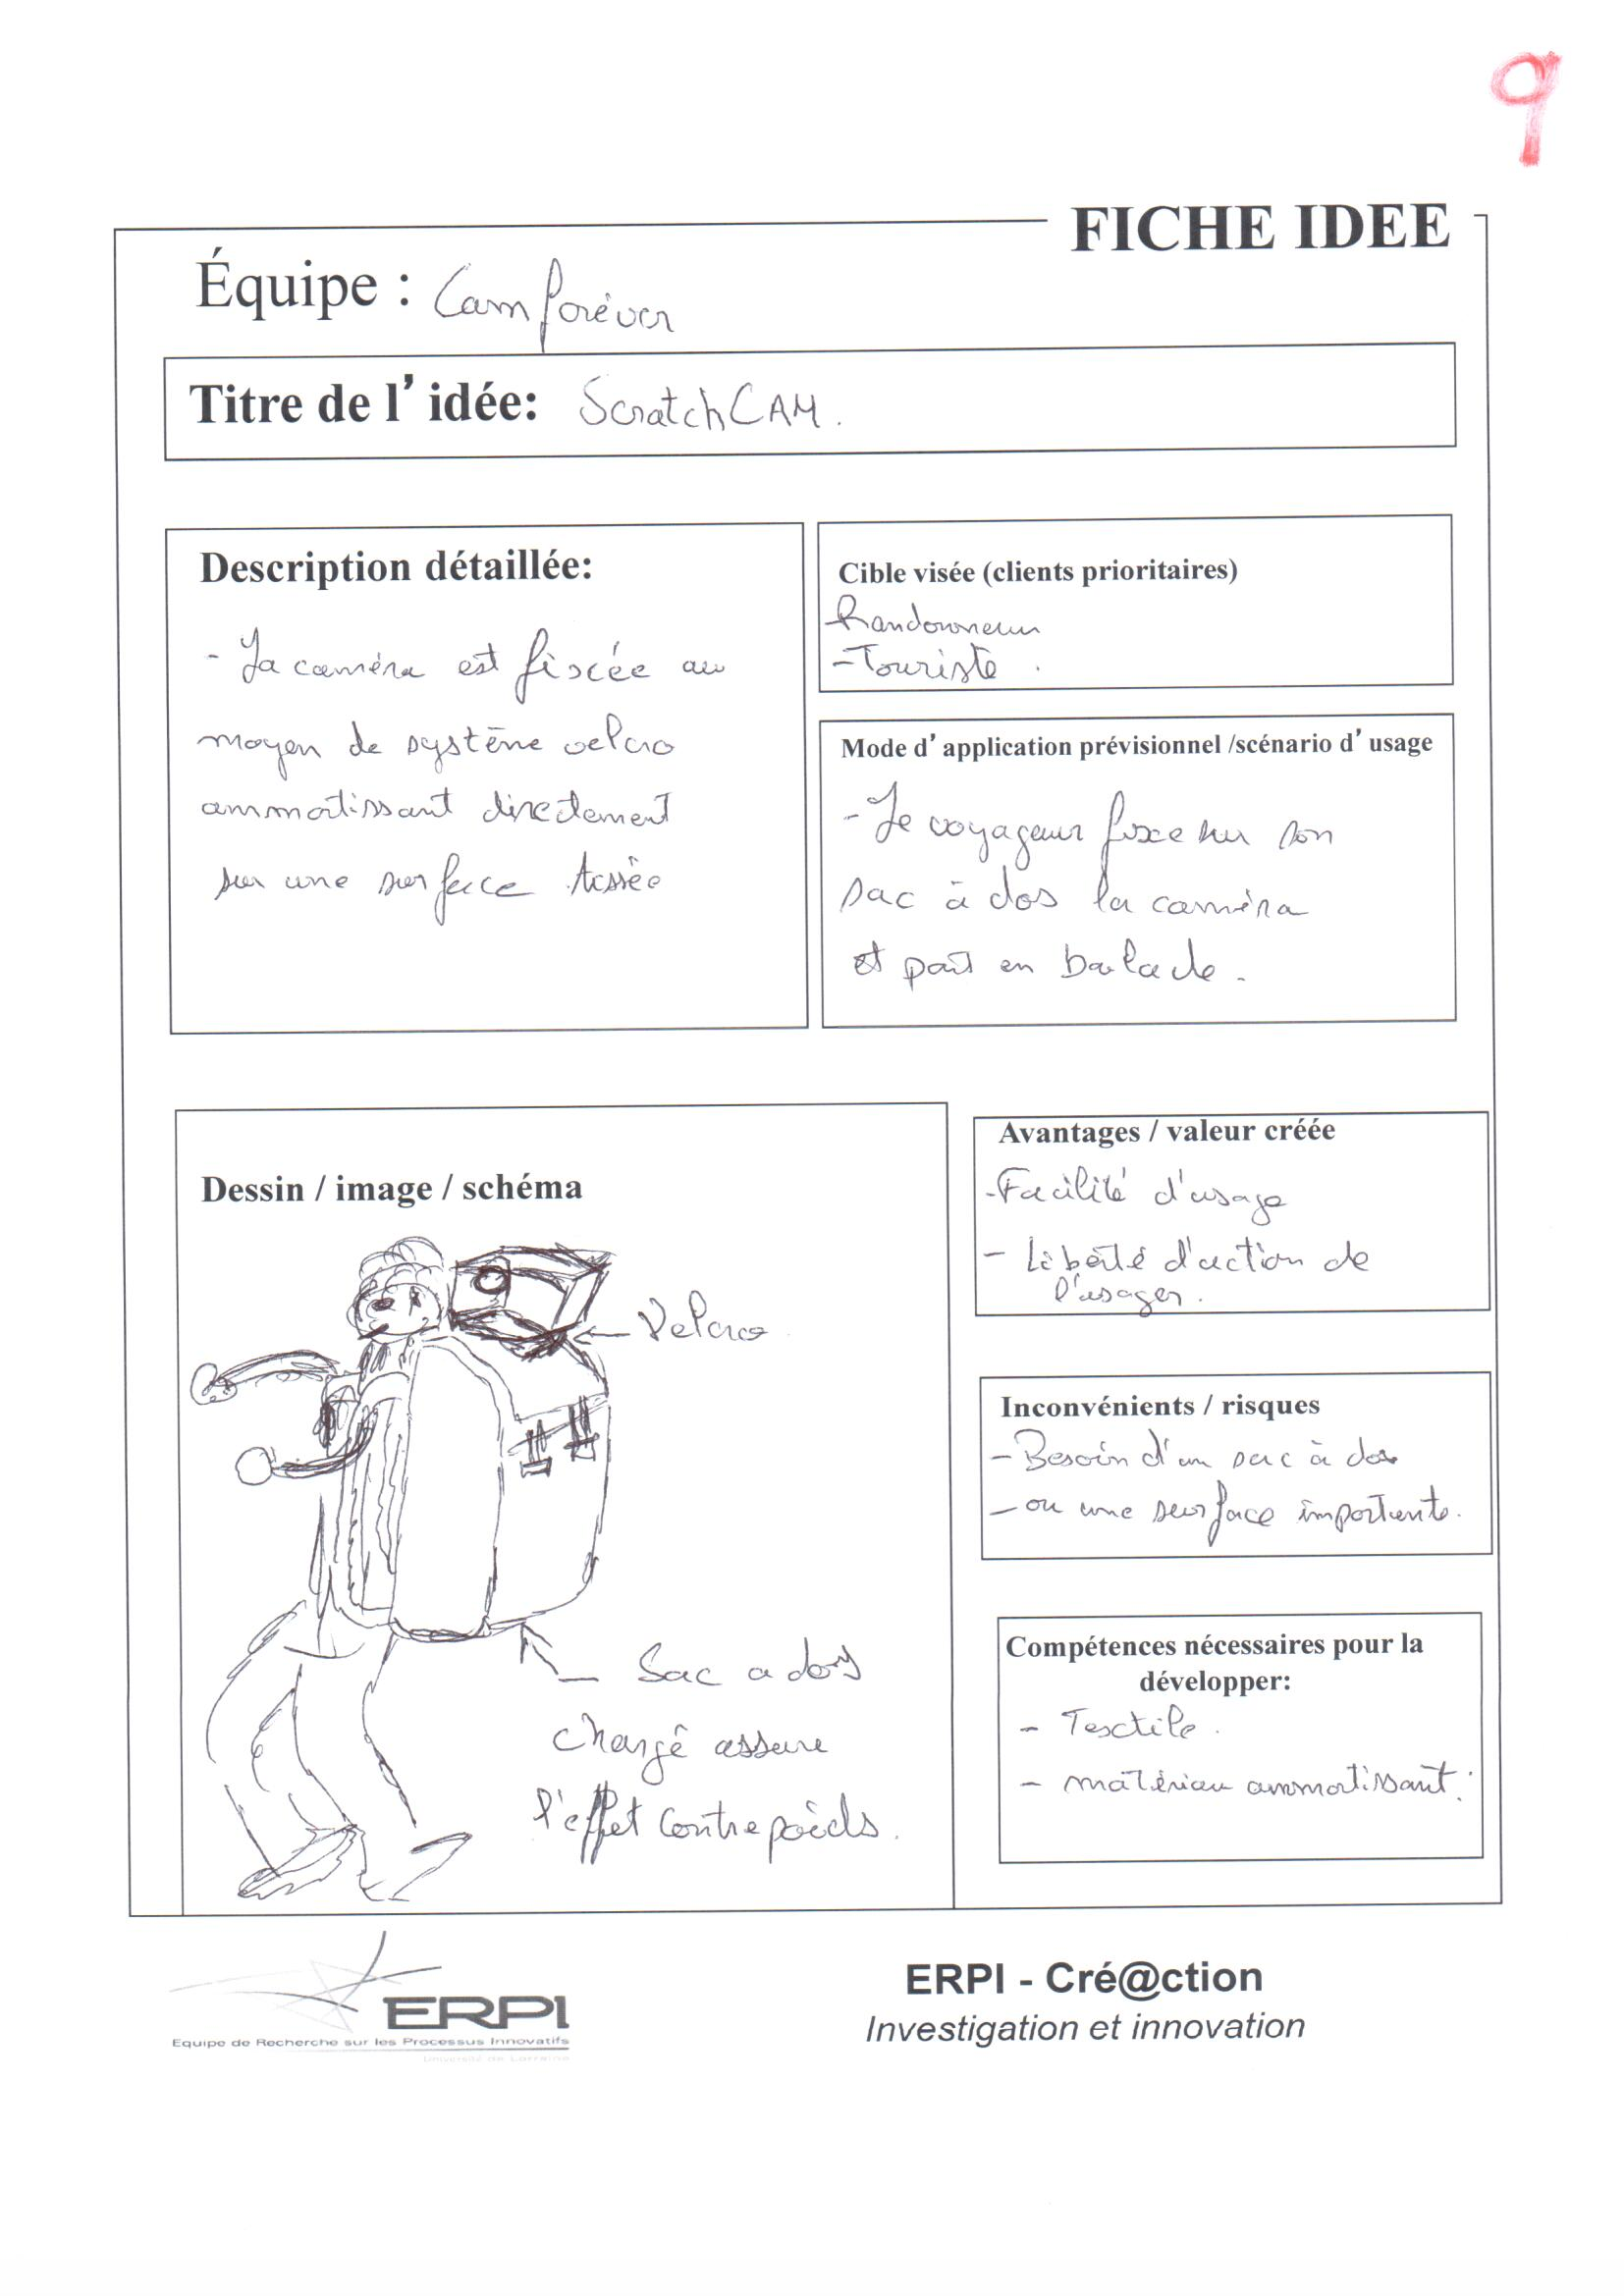 9
FICHE IDEE
Équipe : Camforéver
Titre de l'idée: ScratchCAM.
Description détaillée:
- La caméra est fixée au
moyen de système velcro
ammortissant directement
sur une surface tissée
Cible visée (clients prioritaires)
Randonneur
- Touriste.
Mode d'application prévisionnel /scénario d'usage
- Le voyageur fixe sur son
sac à dos la caméra
et part en balade.
Dessin / image / schéma
Velcro
Sac a dos
chargé assure
l'effet contrepoids.
Avantages / valeur créée
- Facilité d'usage
- Liberté d'action de
l'usager.
Inconvénients / risques
- Besoin d'un sac à dos
- ou une surface importante.
Compétences nécessaires pour la
développer:
- Textile.
- matériau ammortissant.
ERPI
Equipe de Recherche sur les Processus Innovatifs
Université de Lorraine
ERPI - Cré@ction
Investigation et innovation